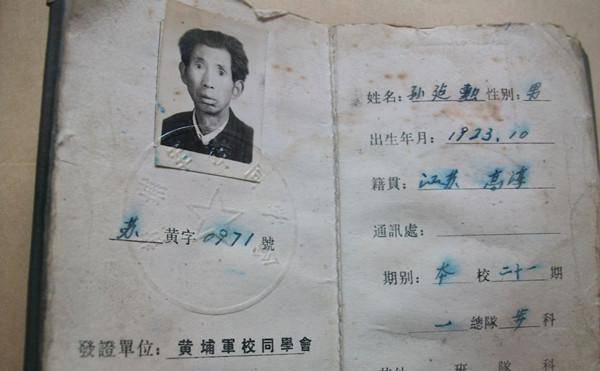 苏 黄字 0971 號
發證單位: 黄埔軍校同學會
姓名: 孙 勲 性别: 男
出生年月: 1923.10
籍貫: 江苏 高淳
通訊處:
期别: 本 校 二十一 期
一 總隊 步 科
班 隊 科